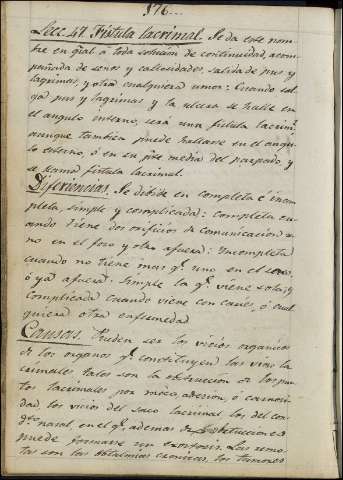 176...
Lecc. 47. Fístula lacrimal. Se da este nom-
bre en gral. a toda solucion de continuidad, acom-
pañada de senos y callosidades, salida de pus y
lagrimas, y otra cualquiera umor: Cuando sal-
ga pus y lagrimas y la ulcera se halle en
el angulo interno, será una fistula lacrim.l
aunque tambien puede hallarse en el angu-
lo esterno, ó en su pte media del parpado y
se llama fistula lacrimal.
Diferiencias. Se dibide en completa é incom-
pleta, simple y complicada: completa cu-
ando tiene dos orificios de comunicacion u-
no en el foro y otro afuera: Incompleta
cuando no tiene mas q.e uno en el
ó ya afuera: Simple la q.e viene sola; y
Complicada cuando viene con caries, ó cual-
quiera otra enfermedad
Causas. Pueden ser los vicios organicos
de los organos q.e constituyen las vias la-
crimales tales son la obstrucion de los pun-
tos lacrimales por moco, adesion, ó carnosi-
dad los vicios del saco lacrimal los del con-
d.to nasal, en el q.e ademas de obstrucciones
puede formarse un exostosis. Las remo-
tas son las oftalmias cronicas, los tumores